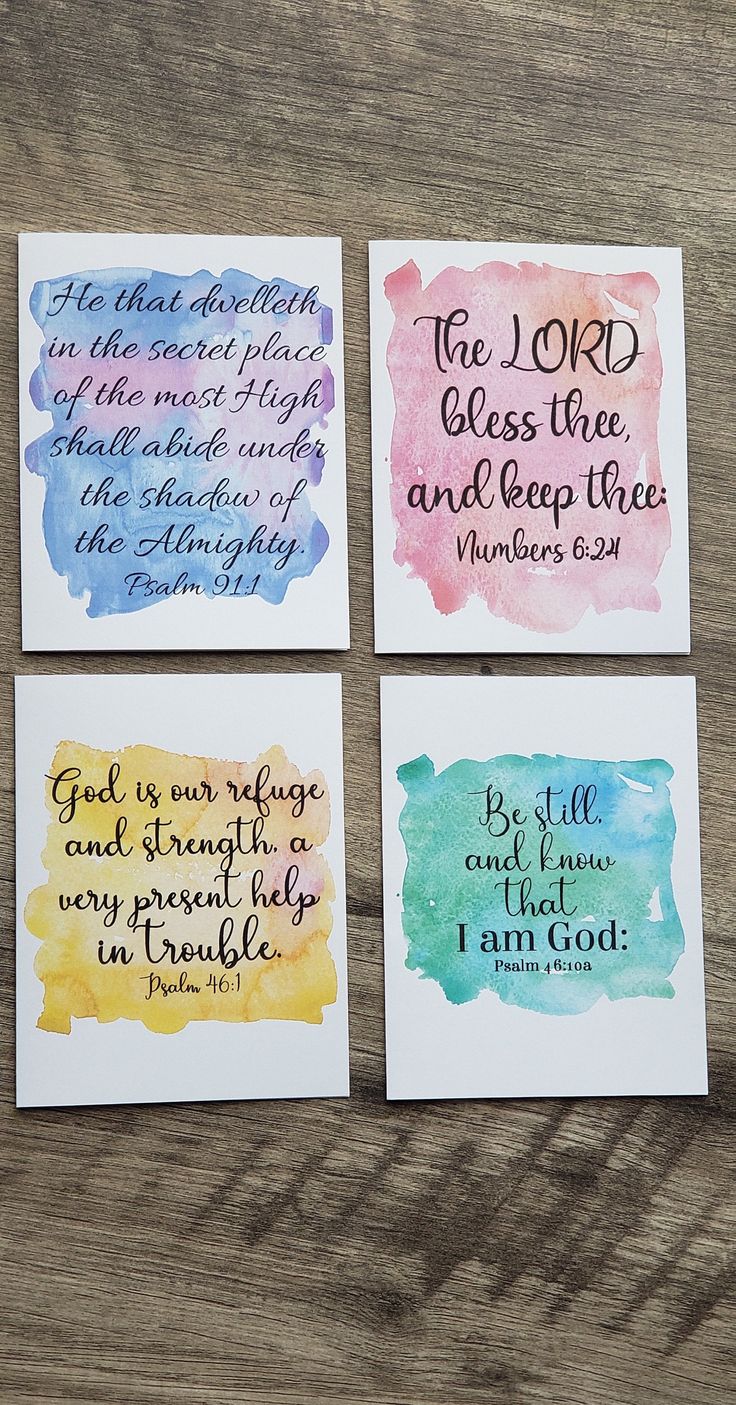 He that dwelleth
in the secret place
of the most High
shall abide under
the shadow of
the Almighty.
Psalm 91:1
The LORD
bless thee,
and keep thee:
Numbers 6:24
God is our refuge
and strength, a
very present help
in trouble.
Psalm 46:1
Be still,
and know
that
I am God:
Psalm 46:10a